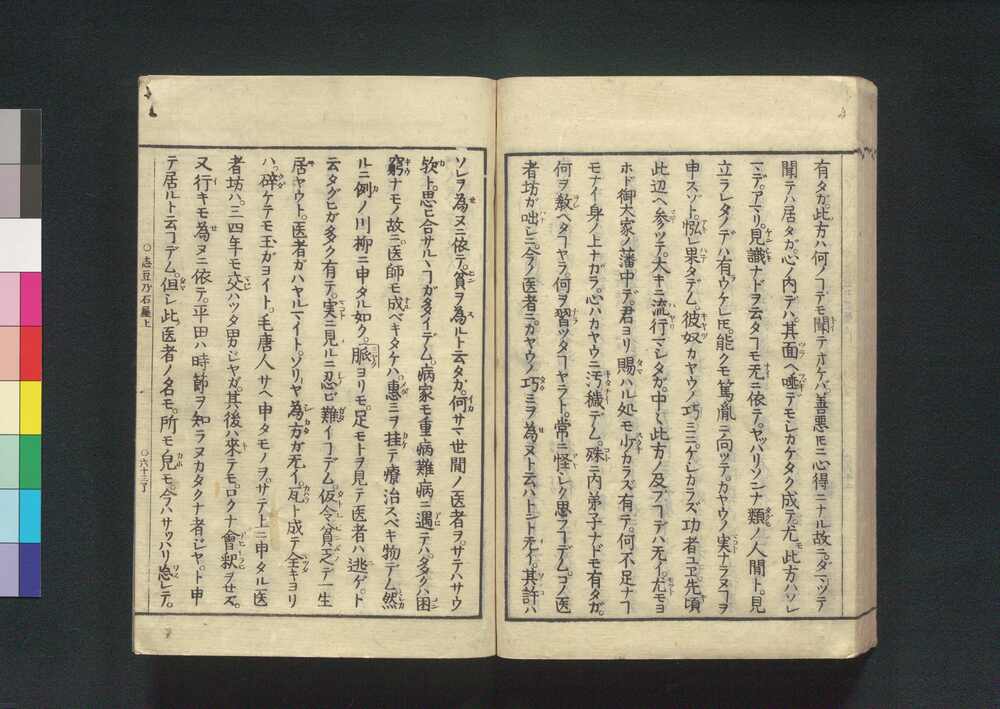 有タガ。此方ハ何ノコデモ聞テオケバ。善悪𪜈ニ心得ニナル故ニ。ダマツテ
聞テハ居タガ。心ノ内デハ。其面ヘ唾デモシカケタク成テ。尤モ此方ハソレ
マデ。アマリ。見識ナドヲ云タコモ无ニ依テ。ヤッパリソンナ類ノ人間ト。見
立ラレタノデハ有ウケレ𪜈。能クモ篤胤ニ向ツテ。カヤウノ実ナラヌコヲ
申スゾト。惘レ果タデム。彼奴カヤウノ巧ミニ。ゲレカラズ功者ユヱ。先頃
此辺ヘ参ツテ。大キニ流行マシタガ。中々此方ノ及ブコデハ无イ。尤モヨ
ホド御大家ノ藩中デ。君ヨリ賜ハル処モ少カラズ有テ。何不足ナコ
モナイ身ノ上ナガラ。心ハカヤウニ汚穢デム。殊ニ内弟子ナドモ有タガ。
何ヲ教ヘタコヤラ。何ヲ習ツタコヤラト。常ニ怪シク思フコデム。コノ医
者坊ガ咄シニ。今ノ医者ニ。カヤウノ巧ミヲ為ヌト云ハトント无イ。其許ハ
ソレヲ為ヌニ依テ。貧ヲ為ルト云タガ。何サマ世間ノ医者ヲ。サテハサウ
欤ト。思ヒ合サルヽコガ多イデム。病家モ重病難病ニ遇テハ。多クハ困
窮ナモノ故ニ。医師モ成ベキタケハ。恵ミヲ挂テ療治スベキ物デム。然
ルニ例ノ川柳ニ申タル如ク。脈ヨリモ。足モトヲ見テ医者ハ逃ゲ。ト
云タグヒガ多ク有テ。実ニ見ルニ忍ビ難イコデム。仮令貧乏テ一生
居ヤウト。医者ガハヤルマイト。ソリャ為方ガ无イ。瓦ト成テ全キヨリ
ハ。砕ケテモ玉ガヨイト。毛唐人サヘ申タモノヲ。サテ上ニ申タル医
者坊ハ。三四年モ交ハツタ男ジャガ。其後ハ來テモ。ロクナ會釈ヲセズ。
又行キモ為ヌニ依テ。平田ハ時節ヲ知ラヌカタクナ者ジャ。ト申
テ居ルト云コデム。但シ此医者ノ名モ。所モ皃モ。今ハサツハリ忘レテ。
○志豆乃石屋上
○六十三丁